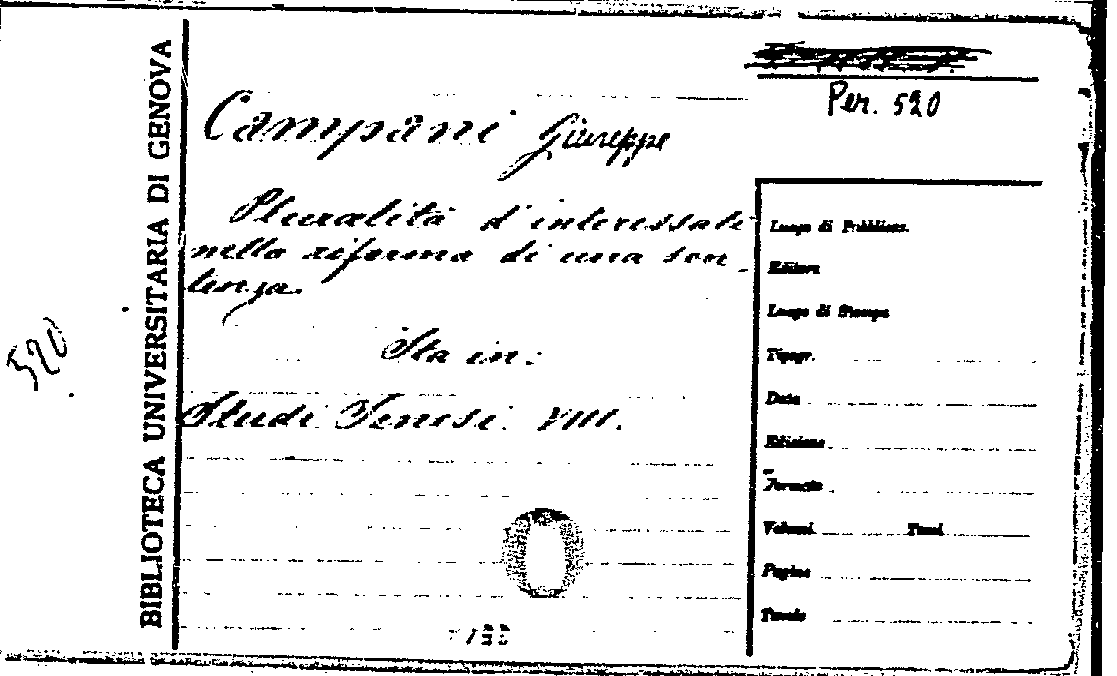 BIBLIOTECA UNIVERSITARIA DI GENOVA
520
Per. 520
Campani Giuseppe
Pluralità d'interessati
nella riforma di una sen-
tenza.
Sta in:
Studi Senesi. VIII.
Luogo di Pubblicaz.
Editore
Luogo di Stampa
Tipogr.
Data
Edizione
Formato
Volumi Tomi
Pagine
Tavole